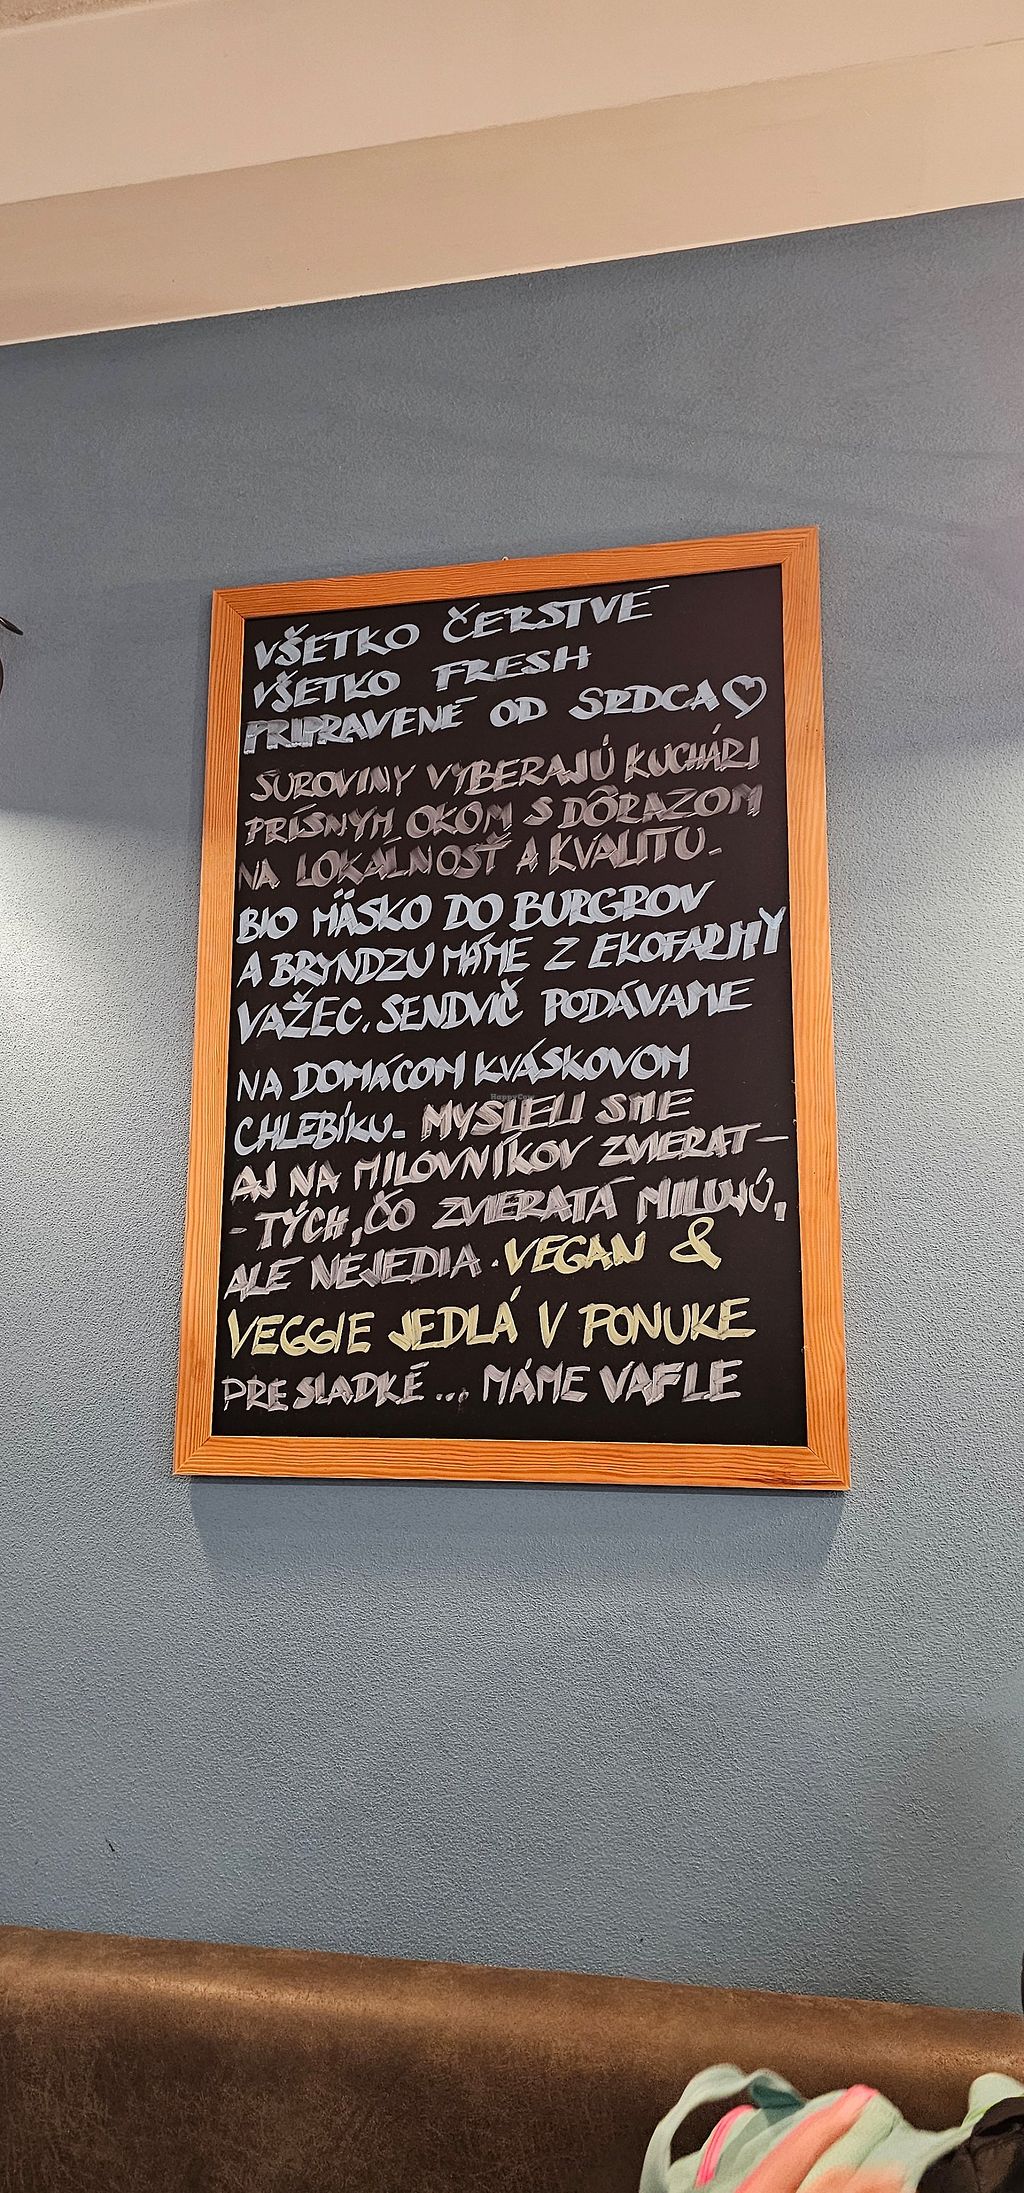 VŠETKO ČERSTVÉ
VŠETKO FRESH
PRIPRAVENÉ OD SRDCA♡
SUROVINY VYBERAJÚ KUCHÁRI
PRÍSNYM OKOM S DÔRAZOM
NA LOKÁLNOSŤ A KVALITU.
BIO MÄSKO DO BURGROV
A BRYNDZU MÁME Z EKOFARMY
VAŽEC. SENDVIČ PODÁVAME
NA DOMÁCOM KVÁSKOVOM
CHLEBÍKU. MYSLELI SME
AJ NA MILOVNÍKOV ZVIERAT -
- TÝCH, ČO ZVIERATÁ MILUJÚ,
ALE NEJEDIA. VEGAN &
VEGGIE JEDLÁ V PONUKE
PRE SLADKÉ ... MÁME VAFLE
HappyCow